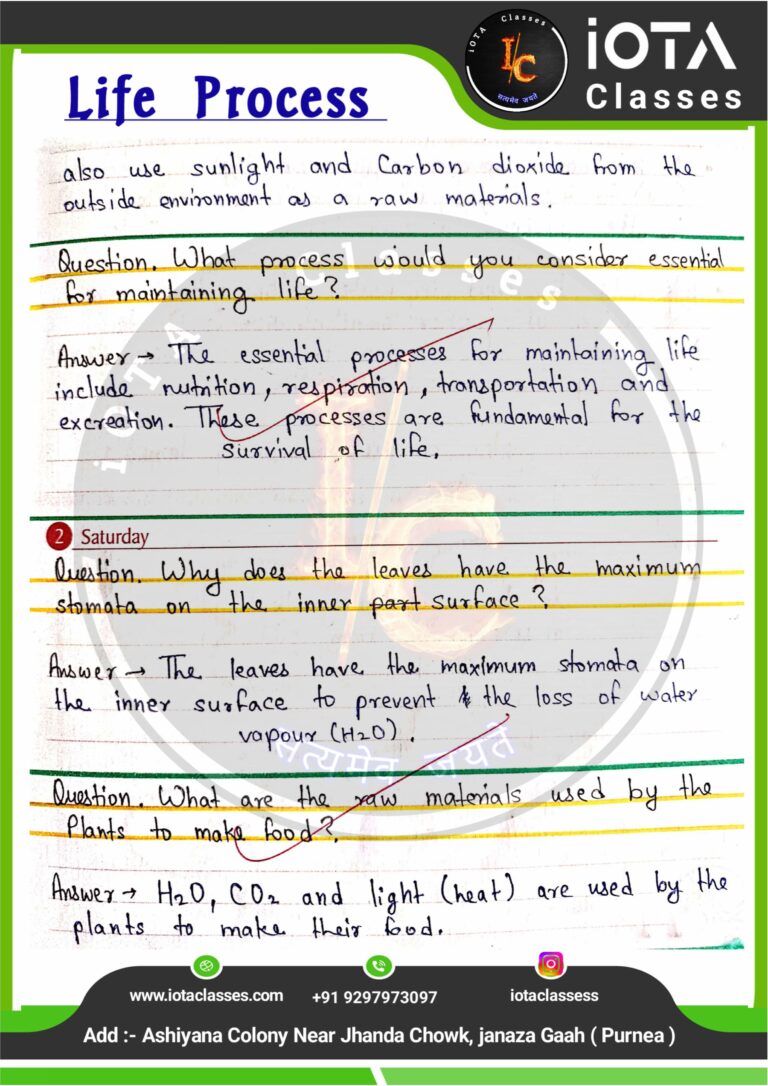 iOTA Classes
I/C
सत्यमेव जयते
iOTA
Classes
Life Process
also use sunlight and Carbon dioxide from the
outside environment as a raw materials.
Question. What process would you consider essential
for maintaining life?
Answer → The essential processes for maintaining life
include nutrition, respiration, transportation and
excreation. These processes are fundamental for the
survival of life.
2 Saturday
Question. Why does the leaves have the maximum
stomata on the inner part surface?
Answer → The leaves have the maximum stomata on
the inner surface to prevent the loss of water
vapour (H2O).
Question. What are the raw materials used by the
Plants to make food?
Answer → H2O, CO2 and light (heat) are used by the
plants to make their food.
iOTA Classes
I/C
सत्यमेव जयते
www.iotaclasses.com
+91 9297973097
iotaclassess
Add :- Ashiyana Colony Near Jhanda Chowk, janaza Gaah ( Purnea )